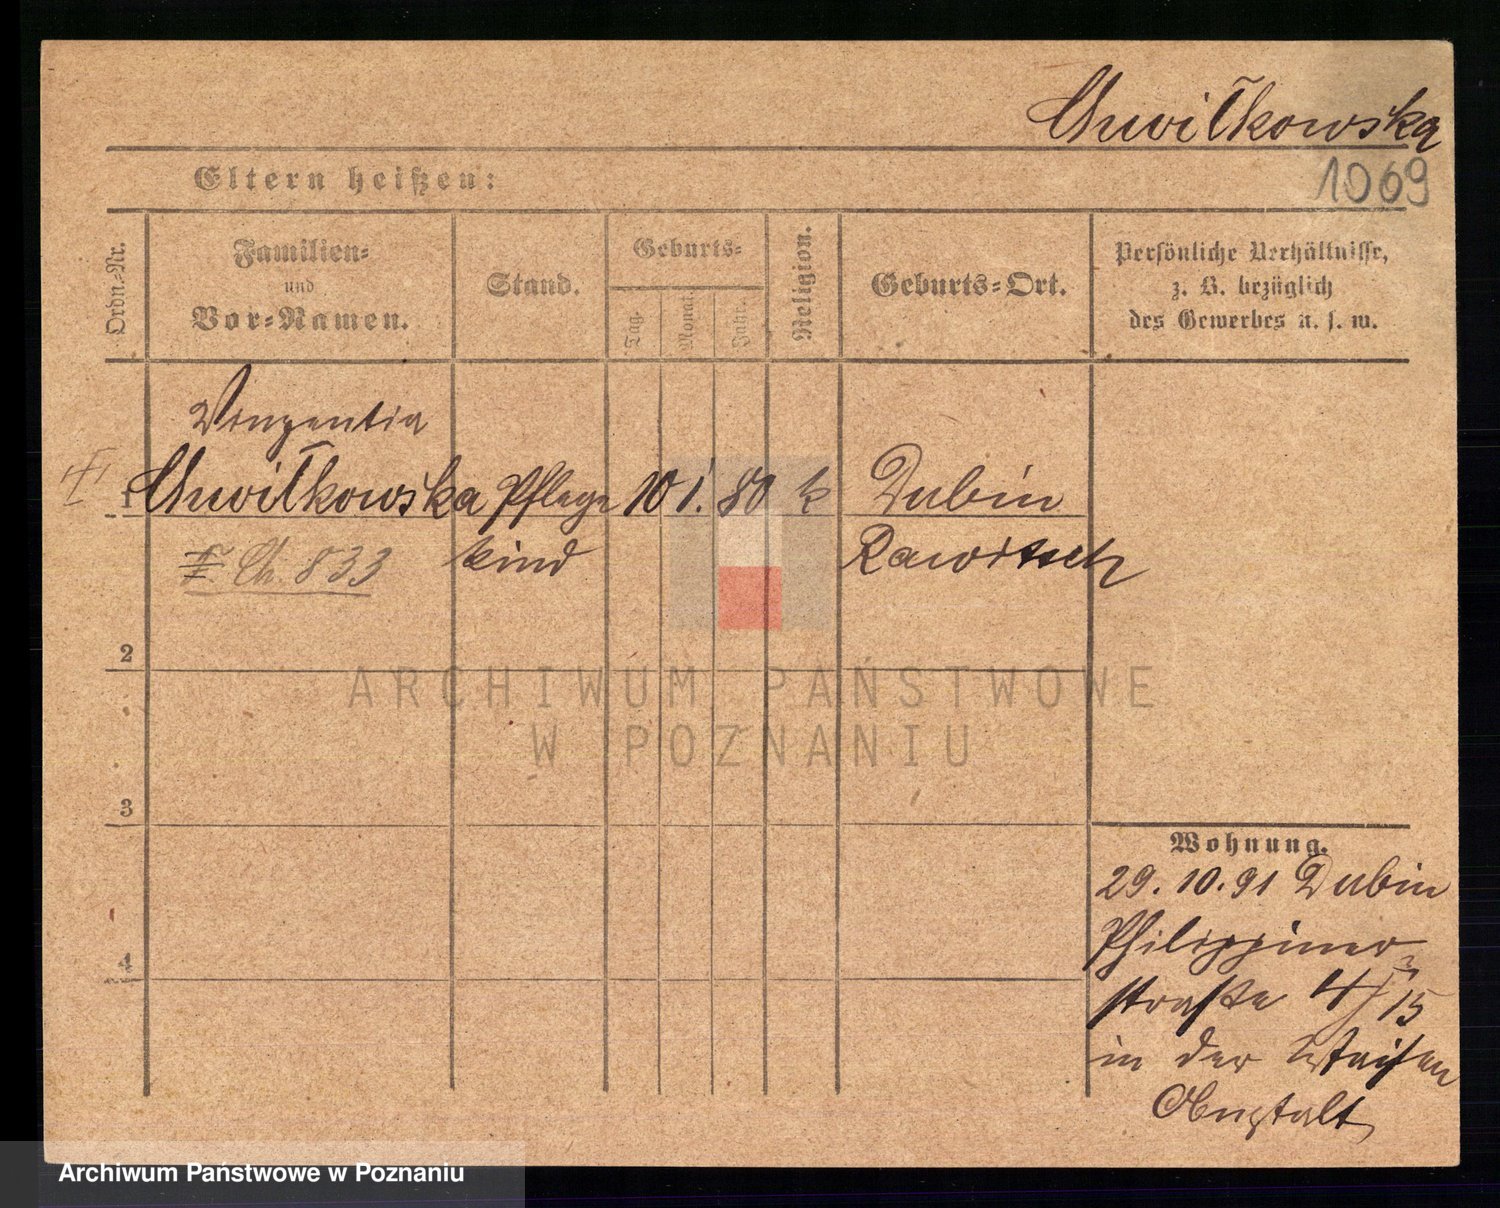 Chwiłkowska
1069
Eltern heißen:
Ordn.-Nr.
Familien-
und
Vor-Namen.
Stand.
Geburts-
Tag.
Monat.
Jahr.
Religion.
Geburts-Ort.
Persönliche Verhältnisse,
z. B. bezüglich
des Gewerbes u. s. w.
Vinzentia
1 Chwiłkowska Pflege 10 1. 80 k Dubin
Ch. 833 kind Rawitsch
2
3
4
Wohnung.
29. 10. 91 Dubin
Philippiner
straße 4/15
in der Waisen
Anstalt
ARCHIWUM PAŃSTWOWE
W POZNANIU
Archiwum Państwowe w Poznaniu